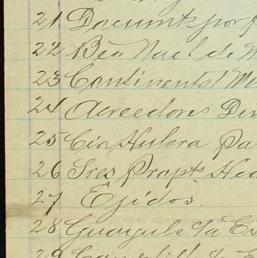 21 Documts por
22 Bco Nacl de M
23 Continental Me
24 Acreedores Div
25 Cia Hulera Pa
26 Sres Propts Hac
27 Ejidos.
28 Guayule La Cu
29